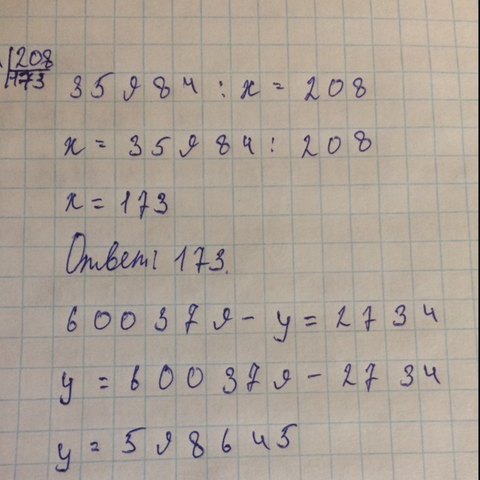 208
173
35984 : x = 208
x = 35984 : 208
x = 173
Ответ: 173.
600379 - y = 2734
y = 600379 - 2734
y = 598645